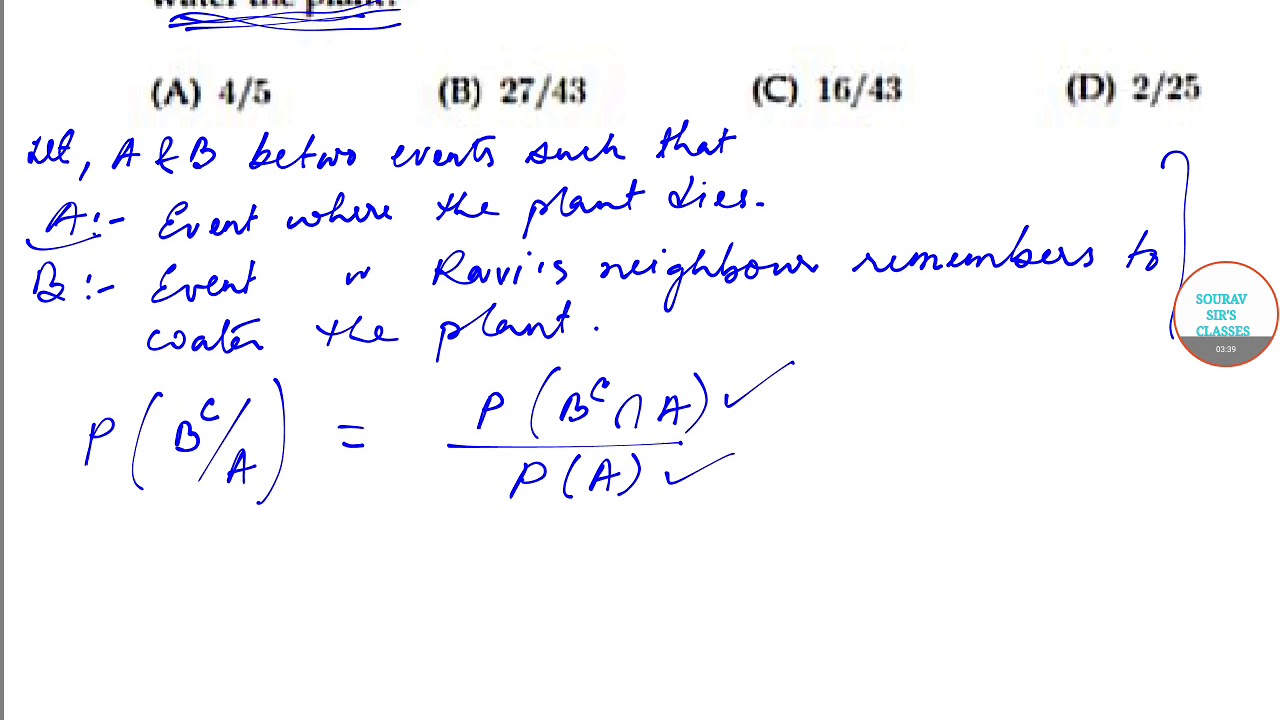 water the plant?
(A) 4/5 (B) 27/43 (C) 16/43 (D) 2/25
Let, A & B be two events such that
A :- Event where the plant dies.
B :- Event " Ravi's neighbour remembers to
water the plant.
P(B^c/A) = P(B^c ∩ A) ✓ / P(A) ✓
SOURAV
SIR'S
CLASSES
03:39